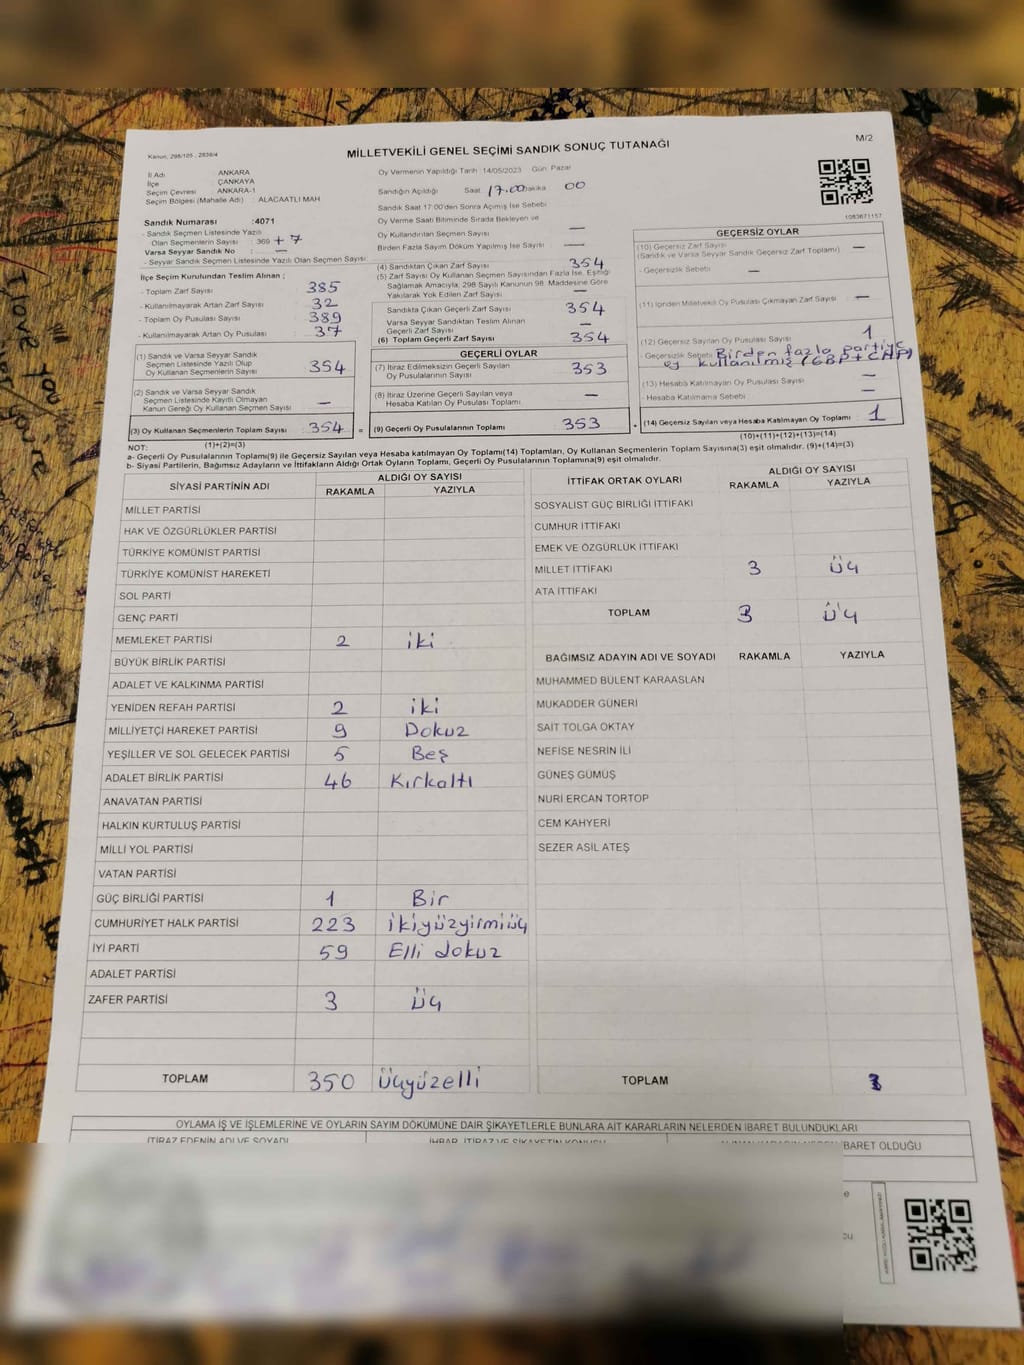 MİLLETVEKİLİ GENEL SEÇİMİ SANDIK SONUÇ TUTANAĞI
M/2
Kanun; 298/105 , 2839/4
İl Adı : ANKARA
İlçe : ÇANKAYA
Seçim Çevresi : ANKARA-1
Seçim Bölgesi (Mahalle Adı) : ALACAATLI MAH
Sandık Numarası :4071
- Sandık Seçmen Listesinde Yazılı
Olan Seçmenlerin Sayısı : 369 + 7
Varsa Seyyar Sandık No : —
- Seyyar Sandık Seçmen Listesinde Yazılı Olan Seçmen Sayısı
İlçe Seçim Kurulundan Teslim Alınan ;
- Toplam Zarf Sayısı 385
- Kullanılmayarak Artan Zarf Sayısı 32
- Toplam Oy Pusulası Sayısı 389
- Kullanılmayarak Artan Oy Pusulası 37
(1) Sandık ve Varsa Seyyar Sandık
Seçmen Listesinde Yazılı Olup
Oy Kullanan Seçmenlerin Sayısı 354
(2) Sandık ve Varsa Seyyar Sandık
Seçmen Listesinde Kayıtlı Olmayan
Kanun Gereği Oy Kullanan Seçmen Sayısı —
(3) Oy Kullanan Seçmenlerin Toplam Sayısı 354 =
(1)+(2)=(3)
Oy Vermenin Yapıldığı Tarih :14/05/2023 Gün: Pazar
Sandığın Açıldığı Saat 17.00 Dakika 00
Sandık Saat 17:00'den Sonra Açımış İse Sebebi
Oy Verme Saati Bitiminde Sırada Bekleyen ve
Oy Kullandırılan Seçmen Sayısı —
Birden Fazla Sayım Döküm Yapılmış İse Sayısı —
(4) Sandıktan Çıkan Zarf Sayısı 354
(5) Zarf Sayısı Oy Kullanan Seçmen Sayısından Fazla İse, Eşitliği
Sağlamak Amacıyla, 298 Sayılı Kanunun 98. Maddesine Göre
Yakılarak Yok Edilen Zarf Sayısı —
Sandıkta Çıkan Geçerli Zarf Sayısı 354
Varsa Seyyar Sandıktan Teslim Alınan
Geçerli Zarf Sayısı —
(6) Toplam Geçerli Zarf Sayısı 354
GEÇERLİ OYLAR
(7) İtiraz Edilmeksizin Geçerli Sayılan
Oy Pusulalarının Sayısı 353
(8) İtiraz Üzerine Geçerli Sayılan veya
Hesaba Katılan Oy Pusulası Toplamı —
(9) Geçerli Oy Pusulalarının Toplamı 353 +
1083671157
GEÇERSİZ OYLAR
(10) Geçersiz Zarf Sayısı —
(Sandık ve Varsa Seyyar Sandık Geçersiz Zarf Toplamı)
- Geçersizlik Sebebi —
(11) İçinden Milletvekili Oy Pusulası Çıkmayan Zarf Sayısı —
(12) Geçersiz Sayılan Oy Pusulası Sayısı 1
Geçersizlik Sebebi Birden fazla partiye
oy kullanılmış (GBP+CHP)
(13) Hesaba Katılmayan Oy Pusulası Sayısı —
Hesaba Katılmama Sebebi —
(14) Geçersiz Sayılan veya Hesaba Katılmayan Oy Toplamı 1
(10)+(11)+(12)+(13)=(14)
NOT:
a- Geçerli Oy Pusulalarının Toplamı(9) ile Geçersiz Sayılan veya Hesaba katılmayan Oy Toplamı(14) Toplamları, Oy Kullanan Seçmenlerin Toplam Sayısına(3) eşit olmalıdır. (9)+(14)=(3)
b- Siyasi Partilerin, Bağımsız Adayların ve İttifakların Aldığı Ortak Oyların Toplamı, Geçerli Oy Pusulalarının Toplamına(9) eşit olmalıdır.
SİYASİ PARTİNİN ADI
ALDIĞI OY SAYISI
RAKAMLA YAZIYLA
MİLLET PARTİSİ
HAK VE ÖZGÜRLÜKLER PARTİSİ
TÜRKİYE KOMÜNİST PARTİSİ
TÜRKİYE KOMÜNİST HAREKETİ
SOL PARTİ
GENÇ PARTİ
MEMLEKET PARTİSİ 2 iki
BÜYÜK BİRLİK PARTİSİ
ADALET VE KALKINMA PARTİSİ
YENİDEN REFAH PARTİSİ 2 iki
MİLLİYETÇİ HAREKET PARTİSİ 9 Dokuz
YEŞİLLER VE SOL GELECEK PARTİSİ 5 Beş
ADALET BİRLİK PARTİSİ 46 Kırkaltı
ANAVATAN PARTİSİ
HALKIN KURTULUŞ PARTİSİ
MİLLİ YOL PARTİSİ
VATAN PARTİSİ
GÜÇ BİRLİĞİ PARTİSİ 1 Bir
CUMHURİYET HALK PARTİSİ 223 ikiyüzyirmiüç
İYİ PARTİ 59 Elli dokuz
ADALET PARTİSİ
ZAFER PARTİSİ 3 üç
TOPLAM 350 üçyüzelli
İTTİFAK ORTAK OYLARI
ALDIĞI OY SAYISI
RAKAMLA YAZIYLA
SOSYALİST GÜÇ BİRLİĞİ İTTİFAKI
CUMHUR İTTİFAKI
EMEK VE ÖZGÜRLÜK İTTİFAKI
MİLLET İTTİFAKI 3 üç
ATA İTTİFAKI
TOPLAM 3 üç
BAĞIMSIZ ADAYIN ADI VE SOYADI RAKAMLA YAZIYLA
MUHAMMED BÜLENT KARAASLAN
MUKADDER GÜNERİ
SAİT TOLGA OKTAY
NEFİSE NESRİN İLİ
GÜNEŞ GÜMÜŞ
NURİ ERCAN TORTOP
CEM KAHYERİ
SEZER ASİL ATEŞ
TOPLAM 3
OYLAMA İŞ VE İŞLEMLERİNE VE OYLARIN SAYIM DÖKÜMÜNE DAİR ŞİKAYETLERLE BUNLARA AİT KARARLARIN NELERDEN İBARET BULUNDUKLARI
İTİRAZ EDENİN ADI VE SOYADI
İHBAR, İTİRAZ VE ŞİKAYETİN KONUSU
BARET OLDUĞU